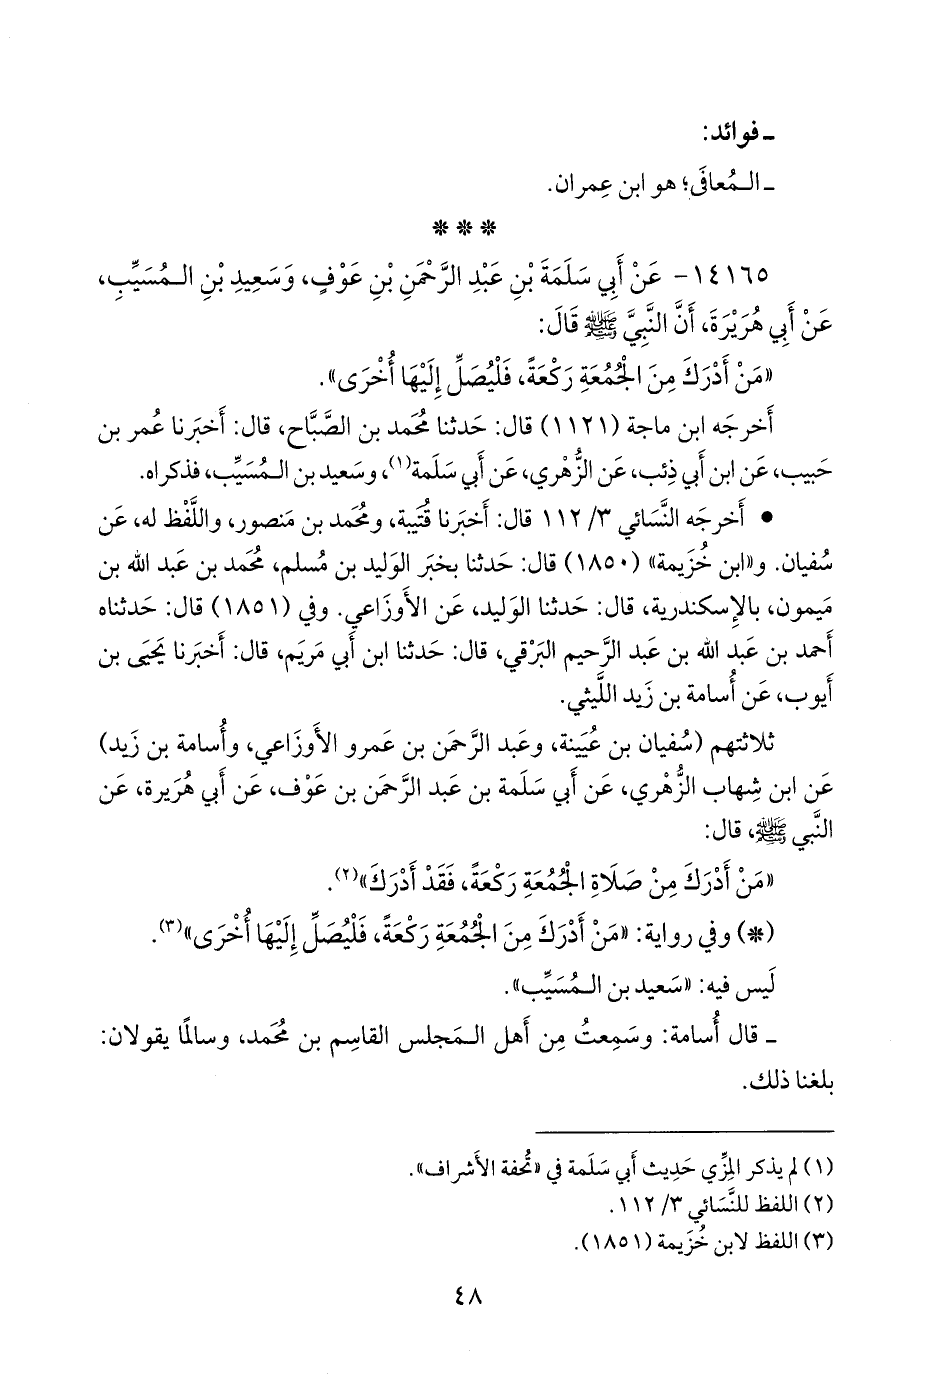 ـ فوائد:
ـ الـمُعافَى؛ هو ابن عِمران.
* * *
١٤١٦٥- عَنْ أَبِي سَلَمَةَ بْنِ عَبْدِ الرَّحْمَنِ بْنِ عَوْفٍ، وَسَعِيدِ بْنِ الـمُسَيِّبِ،
عَنْ أَبِي هُرَيْرَةَ، أَنَّ النَّبِيَّ ﷺ قَالَ:
«مَنْ أَدْرَكَ مِنَ الجُمُعَةِ رَكْعَةً، فَلْيُصَلِّ إِلَيْهَا أُخْرَى».
أَخرجَه ابن ماجة (١١٢١) قال: حَدثنا مُحمد بن الصَّبَّاح، قال: أَخبَرنا عُمر بن
حَبيب، عَن ابن أَبي ذِئب، عَن الزُّهْري، عَن أَبي سَلَمة(١)، وسَعيد بن الـمُسَيِّب، فذكراه.
• أَخرجَه النَّسَائي ٣/ ١١٢ قال: أَخبَرنا قُتَيبة، ومُحمد بن مَنصور، واللَّفْظ له، عَن
سُفيان. و«ابن خُزيمة» (١٨٥٠) قال: حَدثنا بخبَر الوَليد بن مُسلم، مُحمد بن عَبد الله بن
مَيمون، بالإِسكندرية، قال: حَدثنا الوَليد، عَن الأَوزَاعي. وفي (١٨٥١) قال: حَدثناه
أَحمد بن عَبد الله بن عَبد الرَّحيم البَرْقي، قال: حَدثنا ابن أَبي مَريَم، قال: أَخبَرنا يَحيَى بن
أَيوب، عَن أُسامة بن زَيد اللَّيثي.
ثلاثتهم (سُفيان بن عُيَينة، وعَبد الرَّحمَن بن عَمرو الأَوزَاعي، وأُسامة بن زَيد)
عَن ابن شِهاب الزُّهْري، عَن أَبي سَلَمة بن عَبد الرَّحمَن بن عَوْف، عَن أَبي هُرَيرة، عَن
النَّبي ﷺ، قال:
«مَنْ أَدْرَكَ مِنْ صَلَاةِ الجُمُعَةِ رَكْعَةً، فَقَدْ أَدْرَكَ»(٢).
(*) وفي رواية: «مَنْ أَدْرَكَ مِنَ الجُمُعَةِ رَكْعَةً، فَلْيُصَلِّ إِلَيْهَا أُخْرَى»(٣).
لَيس فيه: «سَعيد بن الـمُسَيِّب».
ـ قال أُسامة: وسَمِعتُ مِن أَهل الـمَجلس القاسِم بن مُحمد، وسالمًا يقولان:
بلغنا ذلك.
(١) لم يذكر المِزِّي حَدِيث أَبي سَلَمة في «تُحفة الأَشراف».
(٢) اللفظ للنَّسَائي ٣/ ١١٢.
(٣) اللفظ لابن خُزَيمة (١٨٥١).
٤٨